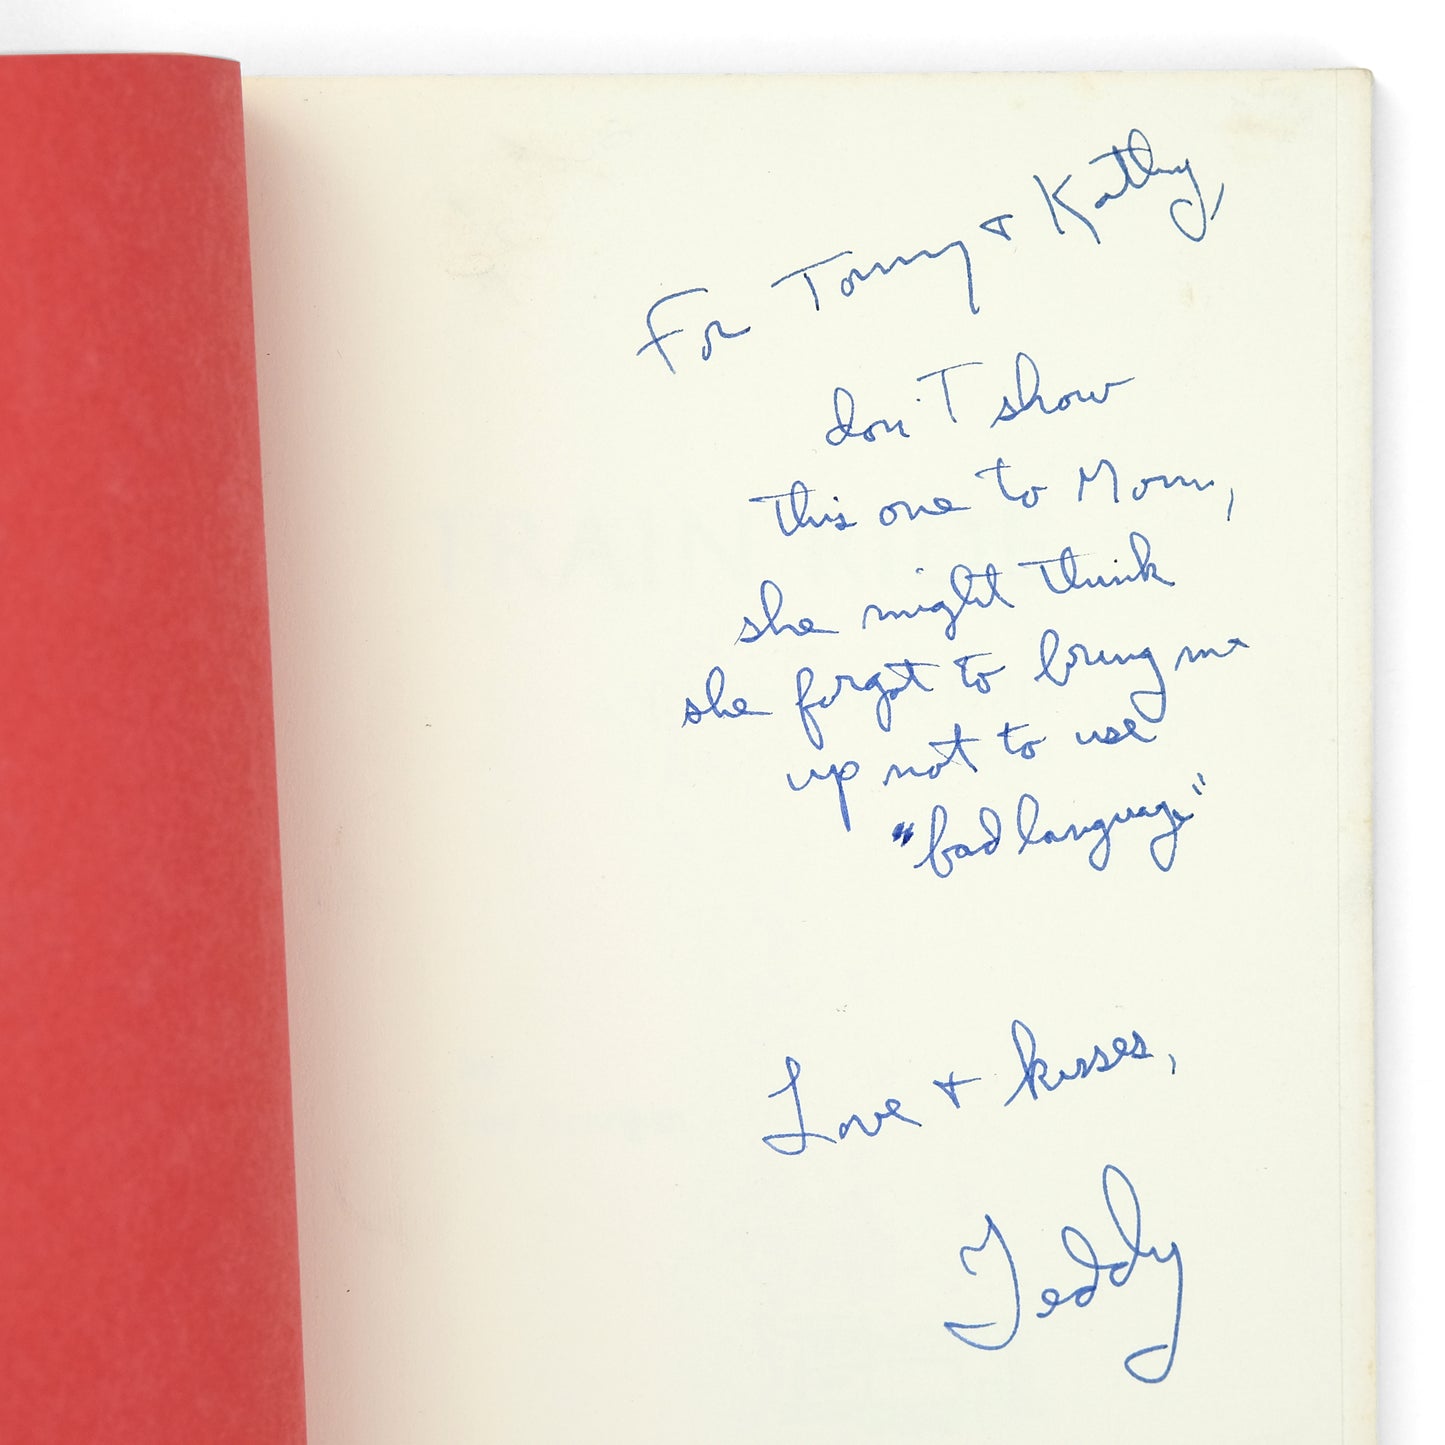 For Tommy & Kathy,
don't show
this one to Mom,
she might think
she forgot to bring me
up not to use
"bad language"
Love & kisses,
Teddy